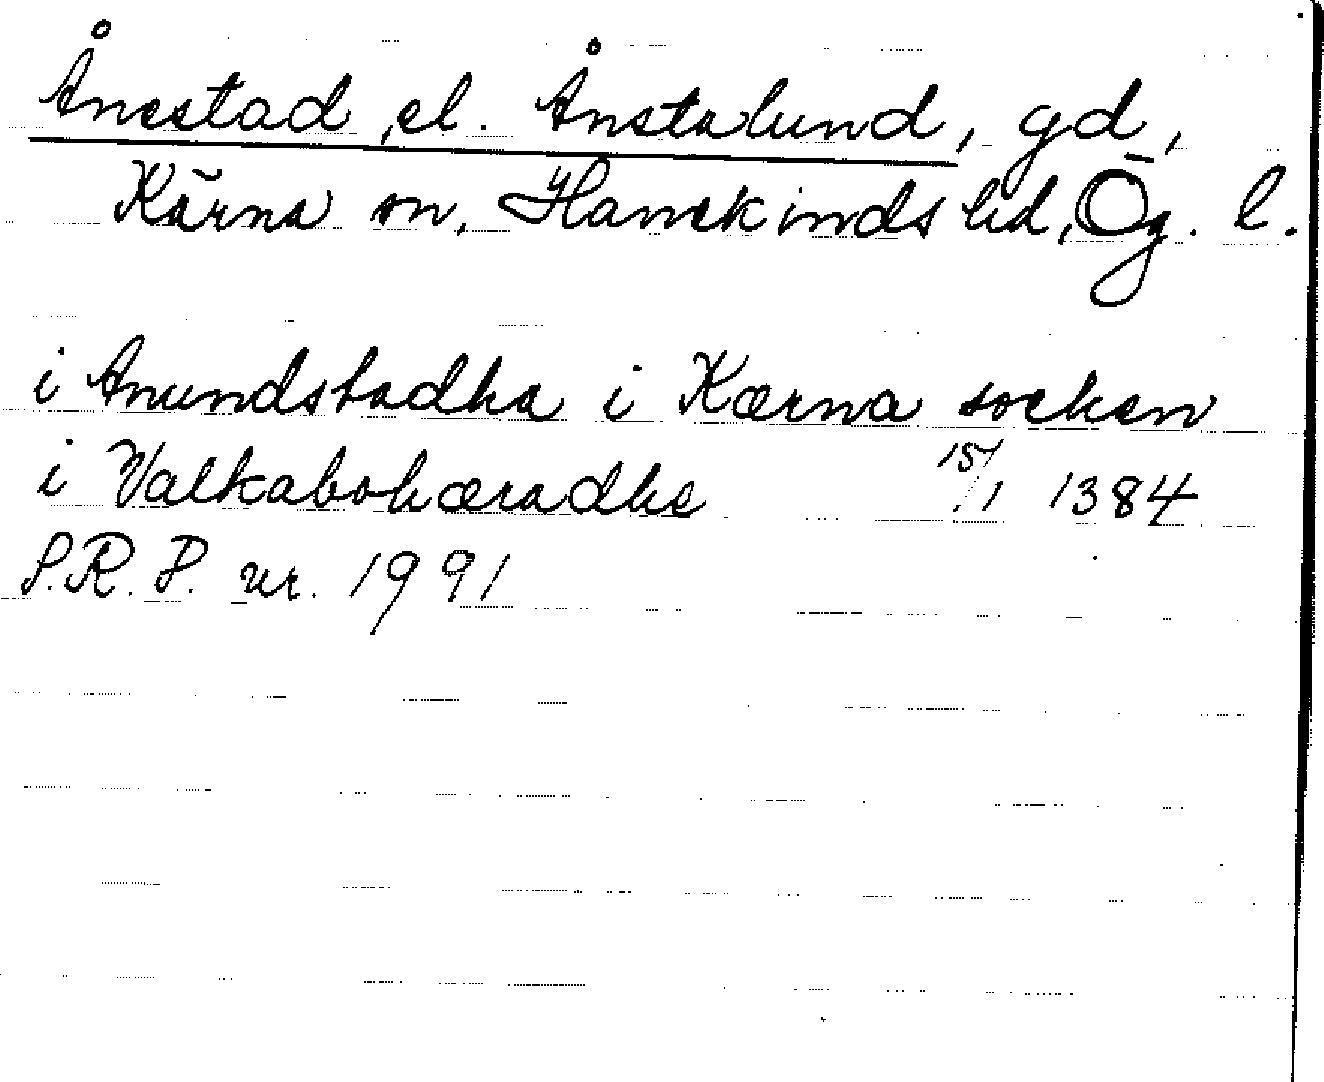 Ånestad, el. Ånstalund, gd,
Kärna sn, Hanekinds hd, Ög. l.
i Anundstadha i Kærna socken
i Valkabohæradhe 15/1 1384
S.R.P. nr. 1991